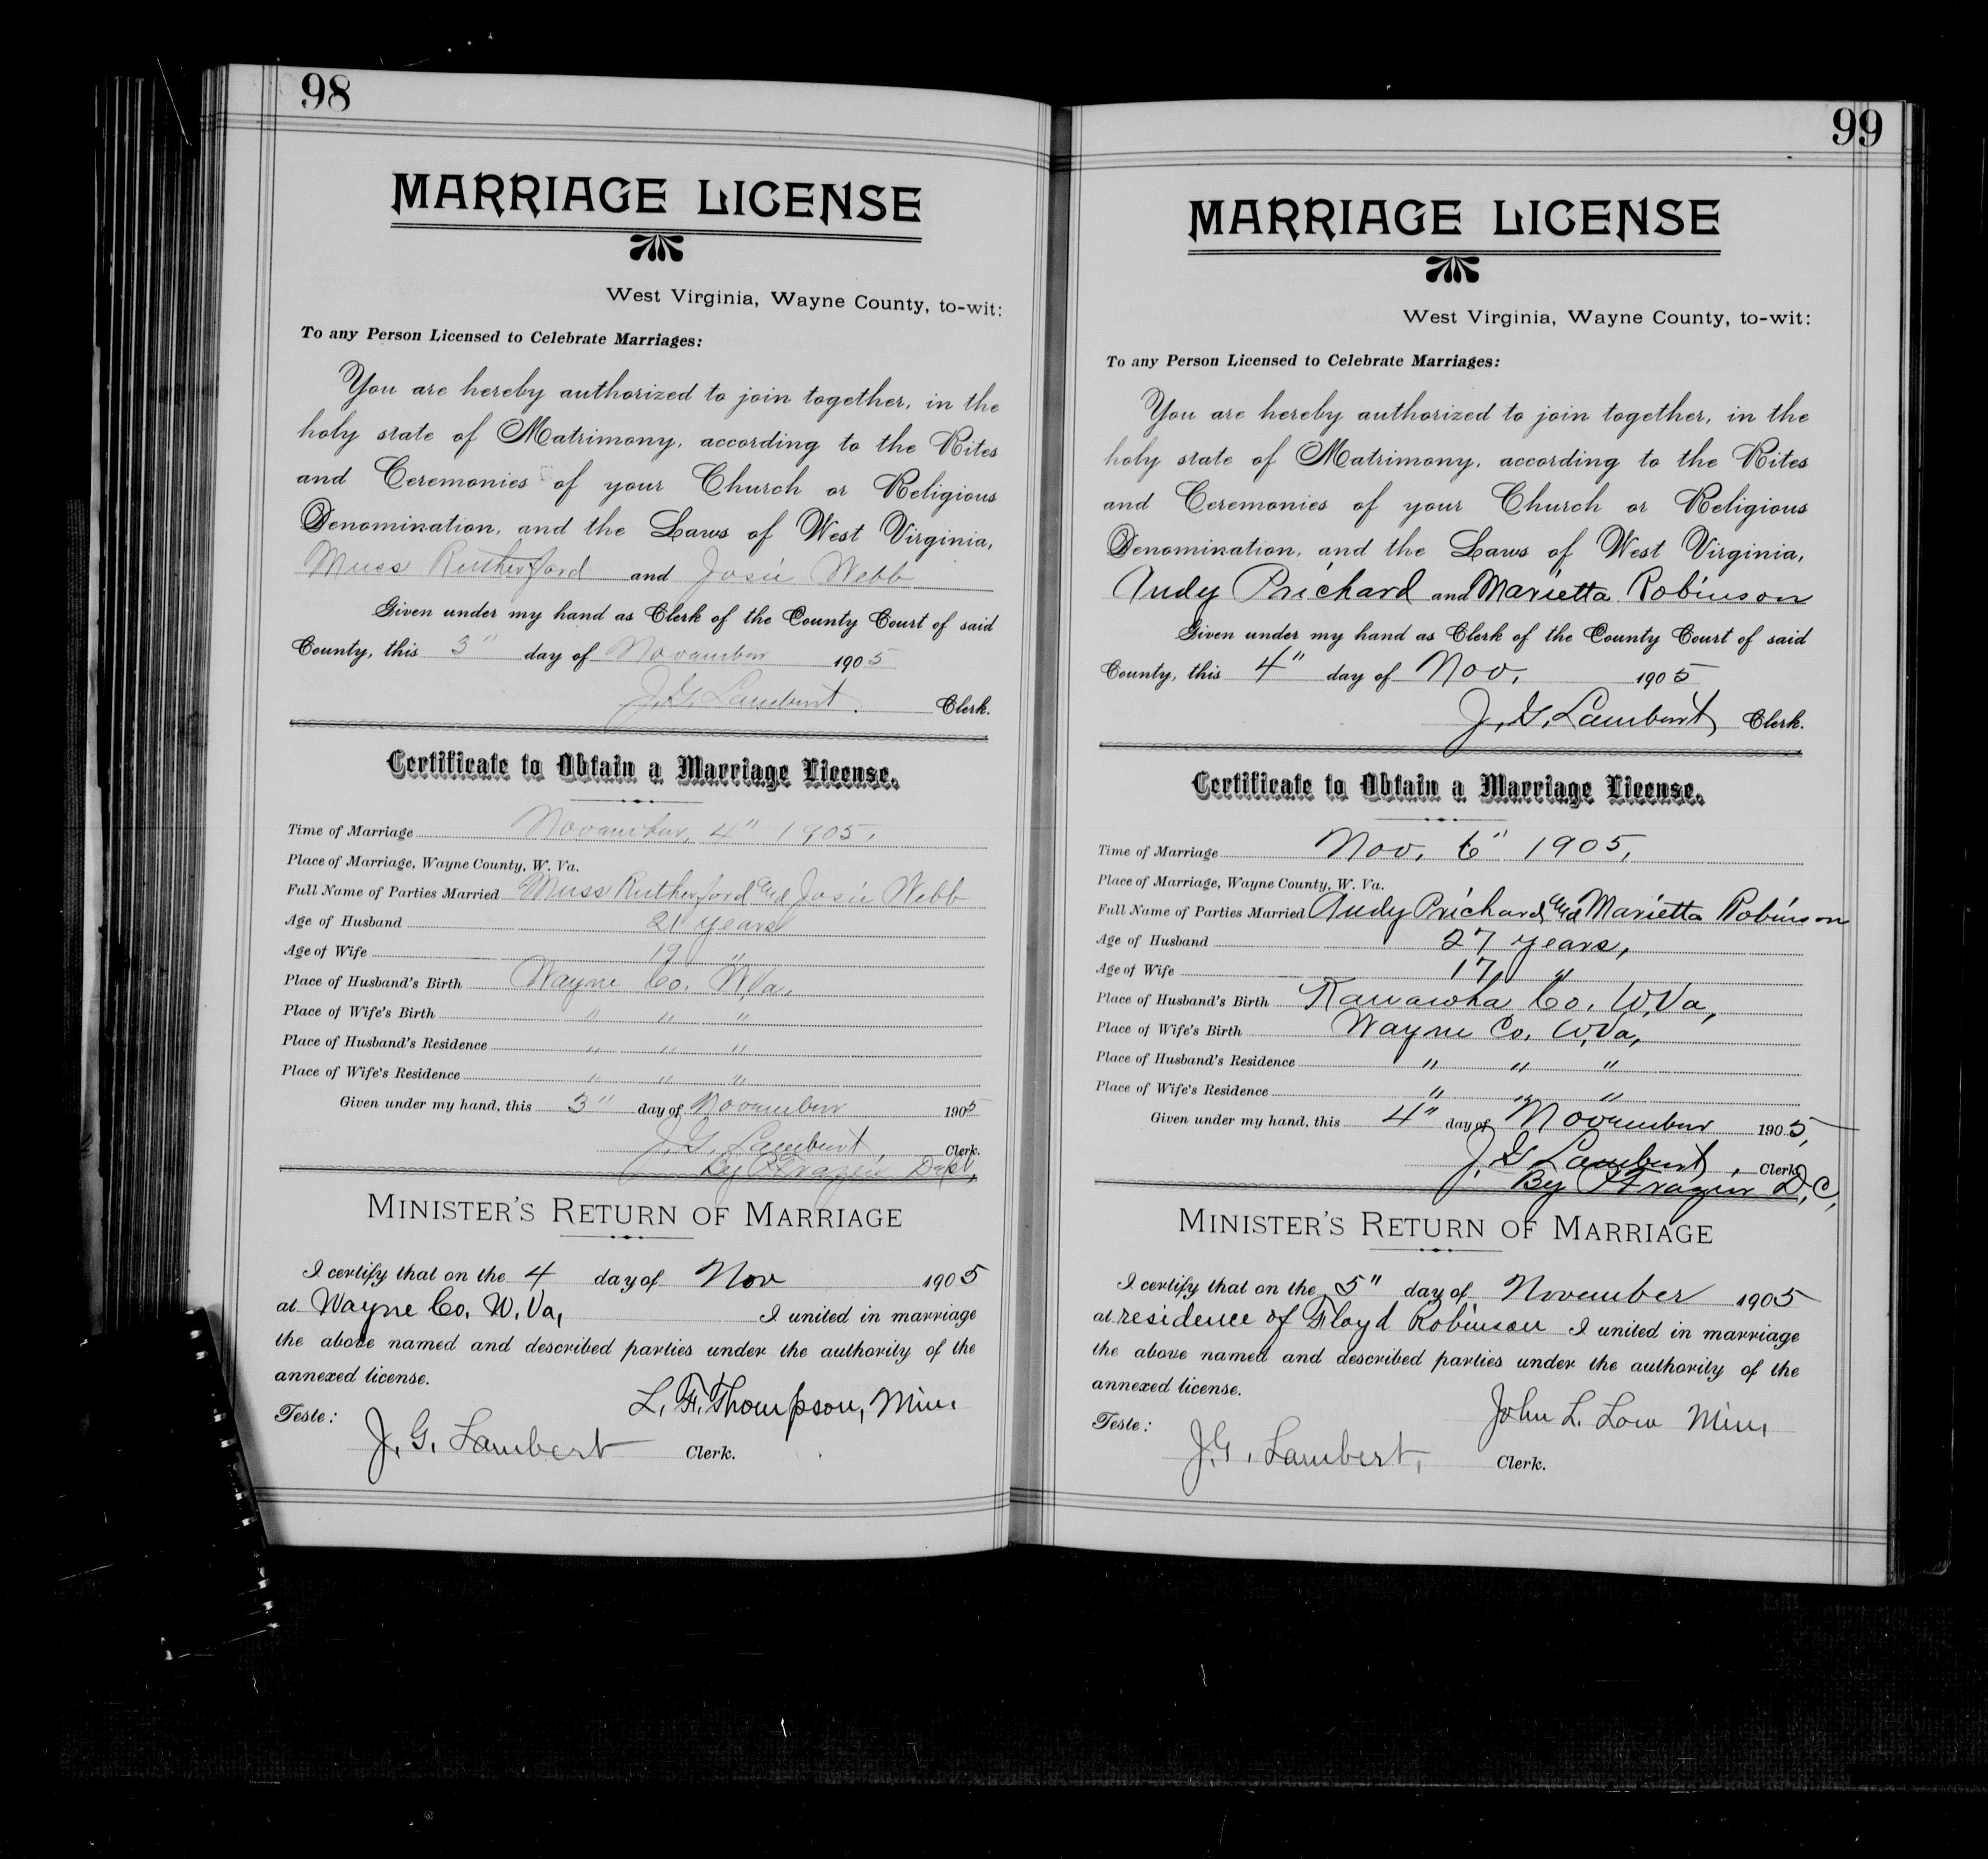 98
MARRIAGE LICENSE
West Virginia, Wayne County, to-wit:
To any Person Licensed to Celebrate Marriages:
You are hereby authorized to join together, in the
holy state of Matrimony, according to the Rites
and Ceremonies of your Church or Religious
Denomination, and the Laws of West Virginia,
Muss Rutherford and Josie Webb
Given under my hand as Clerk of the County Court of said
County, this 3" day of November 1905
J. G. Lambert. Clerk.
Certificate to Obtain a Marriage License.
Time of Marriage November, 4" 1905,
Place of Marriage, Wayne County, W. Va.
Full Name of Parties Married Muss Rutherford and Josie Webb
Age of Husband 21 years
Age of Wife 19 "
Place of Husband's Birth Wayne Co. W.Va.
Place of Wife's Birth " " "
Place of Husband's Residence " " "
Place of Wife's Residence " " "
Given under my hand, this 3" day of November 1905
J. G. Lambert, Clerk.
By Frazier
MINISTER'S RETURN OF MARRIAGE
I certify that on the 4 day of Nov 1905
at Wayne Co. W. Va, I united in marriage
the above named and described parties under the authority of the
annexed license.
L. F. Thompson, Min.
Teste:
J. G. Lambert Clerk.
99
MARRIAGE LICENSE
West Virginia, Wayne County, to-wit:
To any Person Licensed to Celebrate Marriages:
You are hereby authorized to join together, in the
holy state of Matrimony, according to the Rites
and Ceremonies of your Church or Religious
Denomination, and the Laws of West Virginia,
Andy Prichard and Marietta Robinson
Given under my hand as Clerk of the County Court of said
County, this 4" day of Nov. 1905
J. G. Lambert Clerk.
Certificate to Obtain a Marriage License.
Time of Marriage Nov. 6" 1905,
Place of Marriage, Wayne County, W. Va.
Full Name of Parties Married Andy Prichard and Marietta Robinson
Age of Husband 27 years,
Age of Wife 17, "
Place of Husband's Birth Kanawha Co. W.Va,
Place of Wife's Birth Wayne Co. W.Va,
Place of Husband's Residence " " "
Place of Wife's Residence " " "
Given under my hand, this 4" day of November 1905,
J. G Lambert, Clerk
By Frazier D, C,
MINISTER'S RETURN OF MARRIAGE
I certify that on the 5" day of November 1905
at residence of Floyd Robinson I united in marriage
the above named and described parties under the authority of the
annexed license.
John L. Low Min,
Teste:
J. G. Lambert, Clerk.